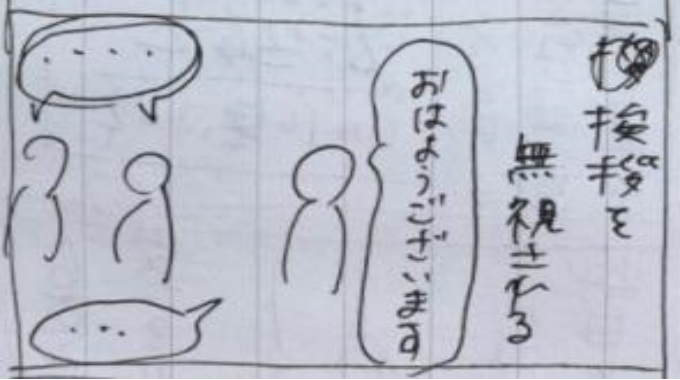 挨拶を
無視される
おはようございます
・・・・
・・・